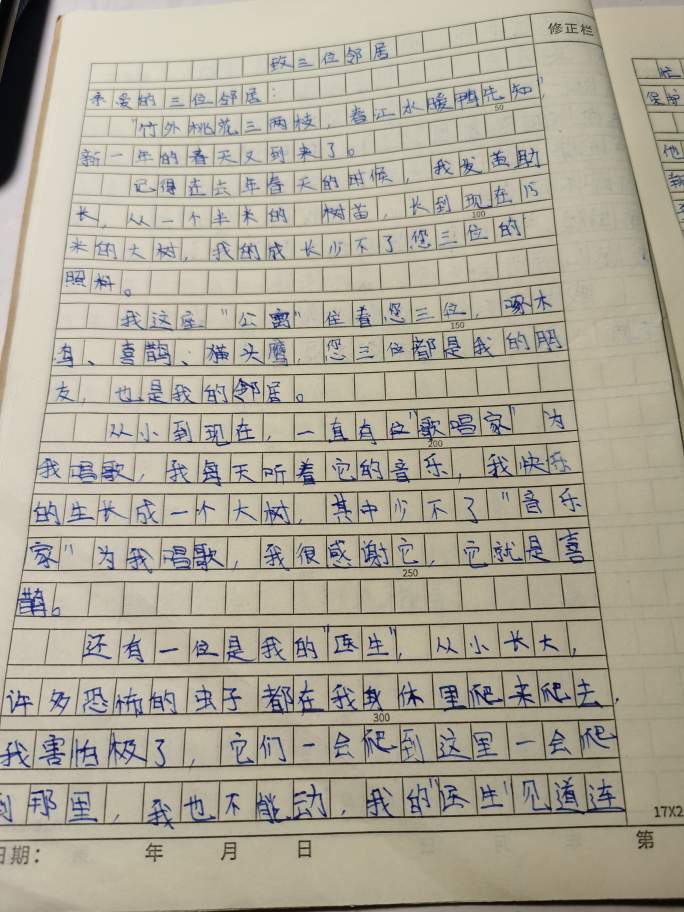 修正栏
致三位邻居
亲爱的三位邻居:
"竹外桃花三两枝,春江水暖鸭先知,"
50
新一年的春天又到来了。
记得在去年春天的时候,我发黄助
长,从一个半米的树苗,长到现在15
100
米的大树,我的成长少不了您三位的
照料。
我这座"公寓"住着您三位,啄木
150
鸟、喜鹊、猫头鹰,您三位都是我的朋
友,也是我的邻居。
从小到现在,一直有位"歌唱家"为
200
我唱歌,我每天听着它的音乐,我快乐
的生长成一个大树,其中少不了"音乐
家"为我唱歌,我很感谢它,它就是喜
250
鹊。
还有一位是我的"医生",从小长大,
许多恐怖的虫子都在我身体里爬来爬去,
300
我害怕极了,它们一会爬到这里一会爬
到那里,我也不能动,我的"医生"见道连
17X2
日期: 年 月 日 第
忙
保护
他